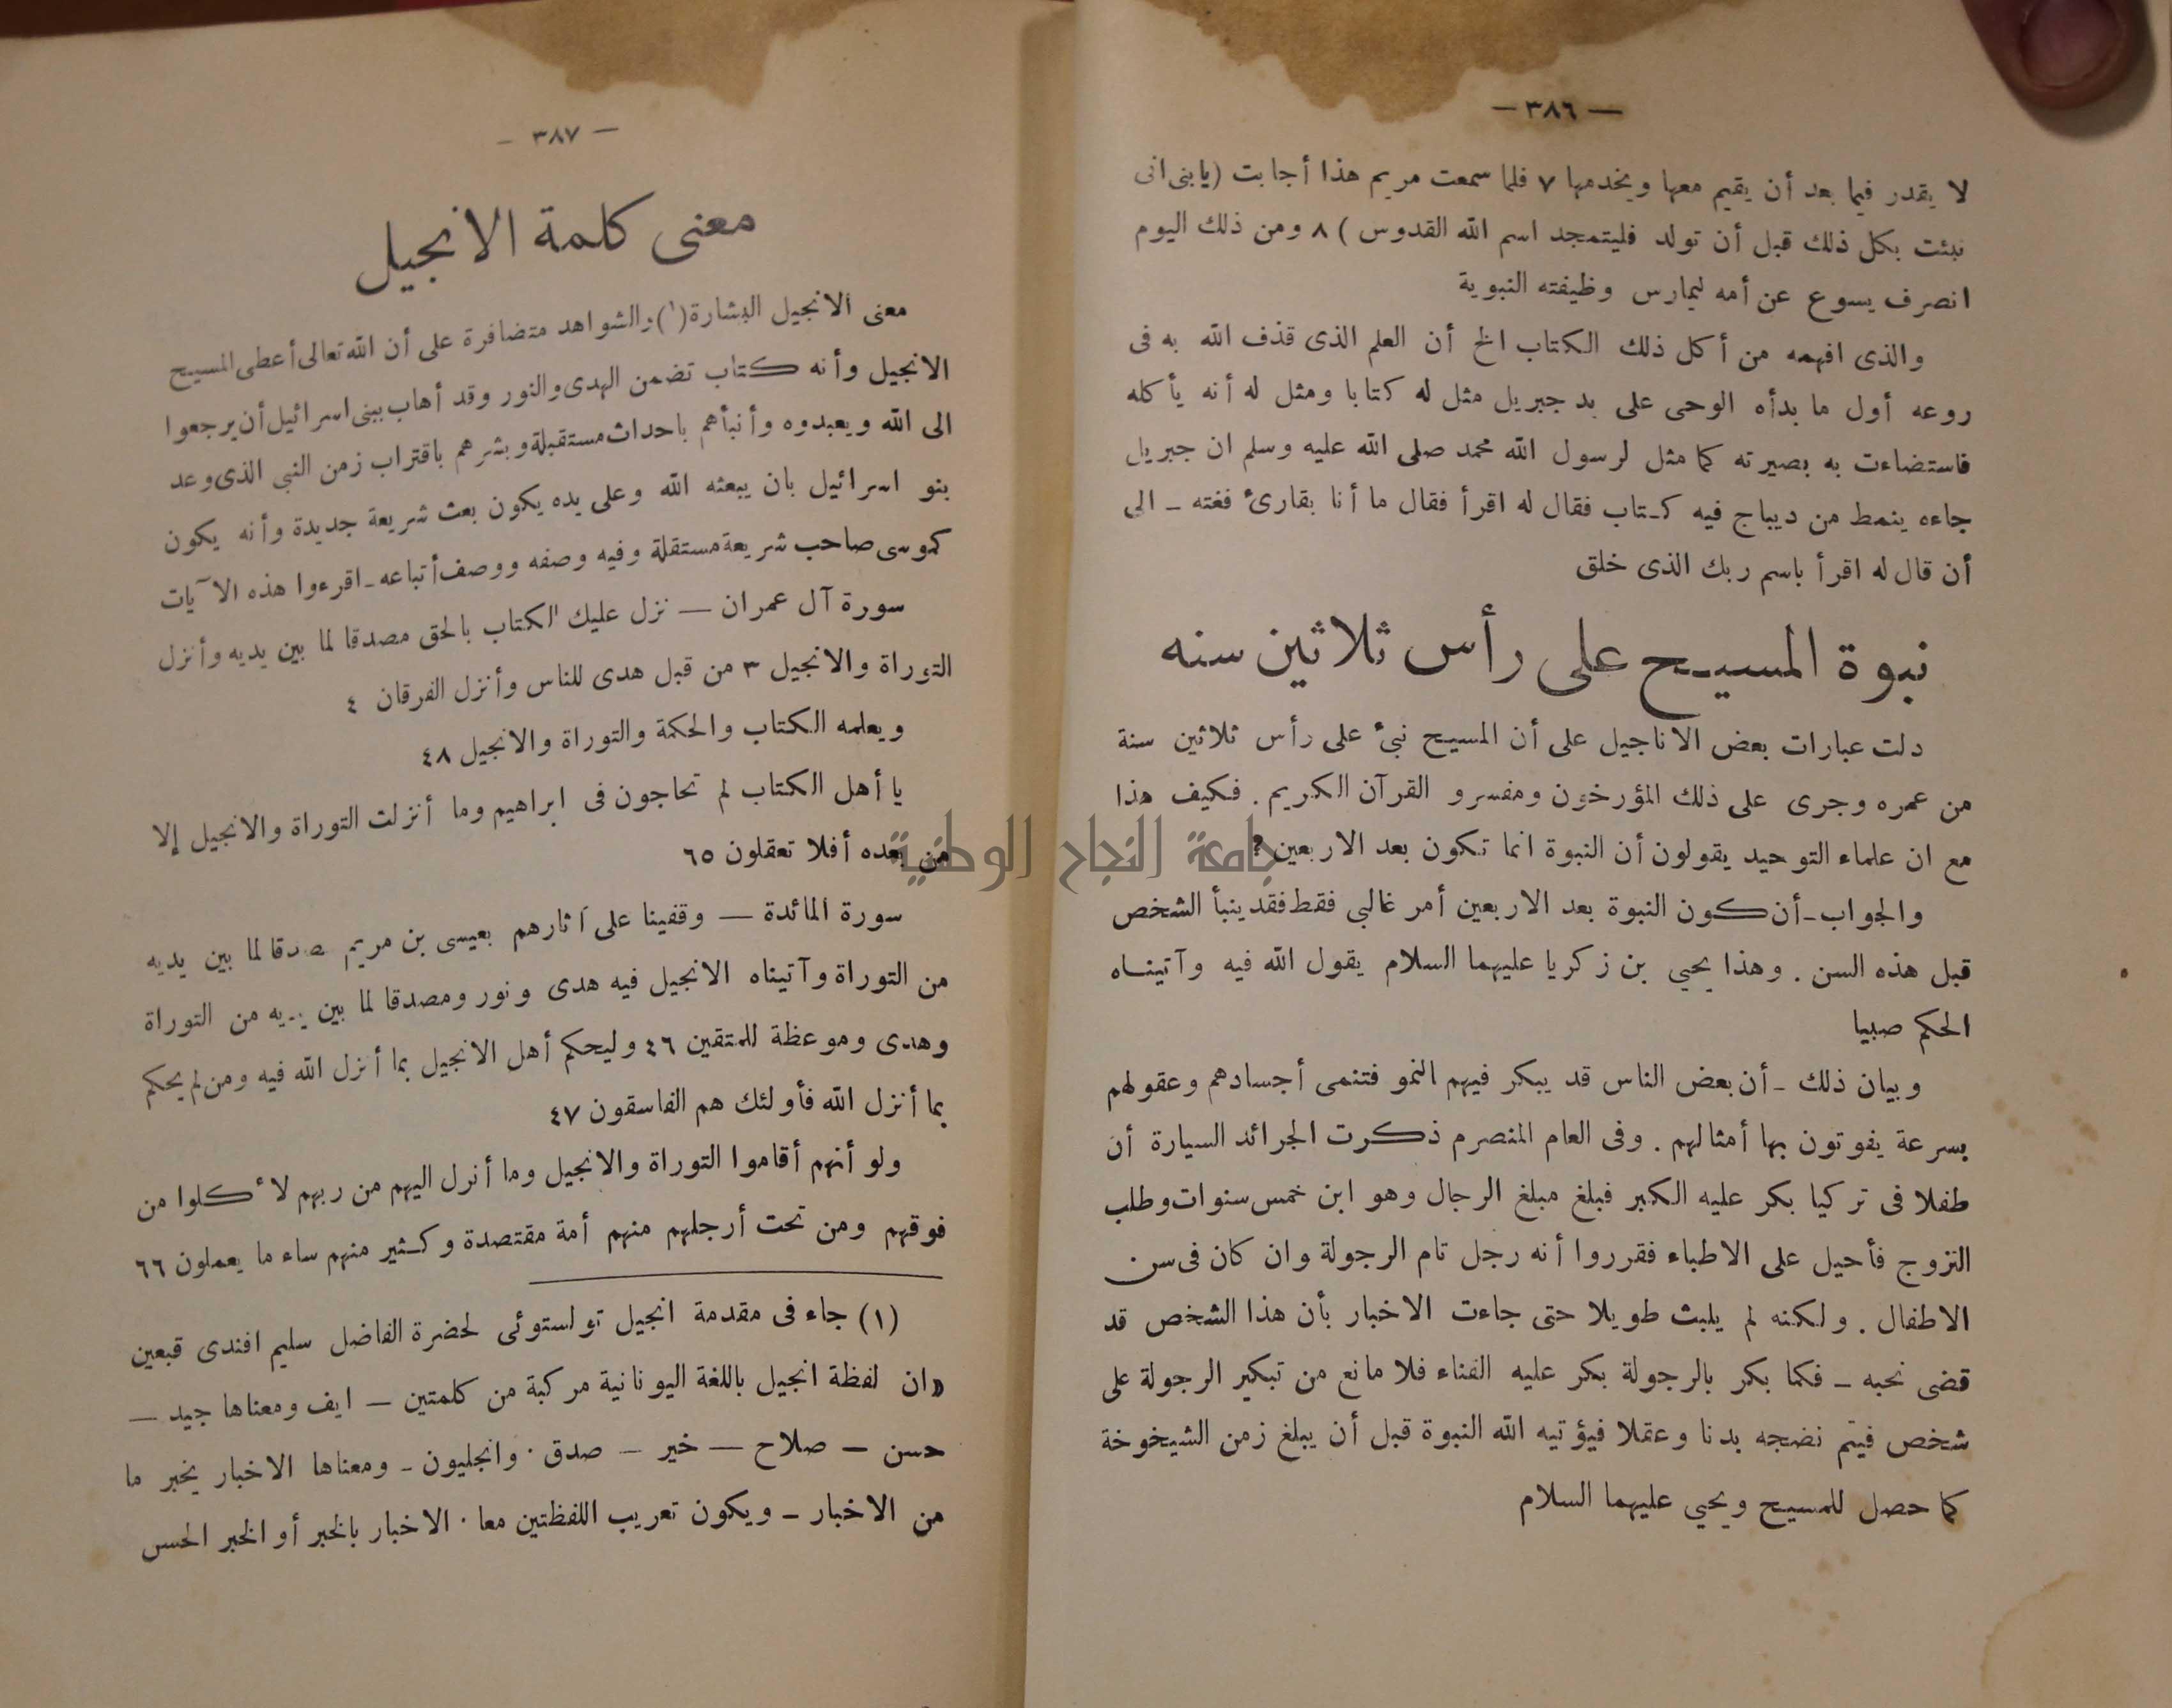 — ٣٨٦ —
لا يقدر فيما بعد أن يقيم معها ويخدمها ٧ فلما سمعت مريم هذا أجابت (يابنى انى
نبئت بكل ذلك قبل أن تولد فليتمجد اسم الله القدوس ) ٨ ومن ذلك اليوم
انصرف يسوع عن أمه ليمارس وظيفته النبوية
والذى افهمه من أكل ذلك الكتاب الخ أن العلم الذى قذف الله به فى
روعه أول ما بدأه الوحى على يد جبريل مثل له كتابا ومثل له أنه يأكله
فاستضاءت به بصيرته كما مثل لرسول الله محمد صلى الله عليه وسلم ان جبريل
جاءه ينمط من ديباج فيه كتاب فقال له اقرأ فقال ما أنا بقارئ فغته - الى
أن قال له اقرأ باسم ربك الذى خلق
نبوة المسيح على رأس ثلاثين سنه
دلت عبارات بعض الاناجيل على أن المسيح نبئ على رأس ثلاثين سنة
من عمره وجرى على ذلك المؤرخون ومفسرو القرآن الكريم . فكيف هذا
مع ان علماء التوحيد يقولون أن النبوة انما تكون بعد الاربعين ؟
والجواب - أن كون النبوة بعد الاربعين أمر غالبى فقط فقد ينبأ الشخص
قبل هذه السن . وهذا يحيى بن زكريا عليهما السلام يقول الله فيه وآتيناه
الحكم صبيا
وبيان ذلك - أن بعض الناس قد يبكر فيهم النمو فتنمى أجسادهم وعقولهم
بسرعة يفوتون بها أمثالهم . وفى العام المنصرم ذكرت الجرائد السيارة أن
طفلا فى تركيا بكر عليه الكبر فبلغ مبلغ الرجال وهو ابن خمس سنوات وطلب
التزوج فأحيل على الاطباء فقرروا أنه رجل تام الرجولة وان كان فى سن
الاطفال . ولكنه لم يلبث طويلا حتى جاءت الاخبار بأن هذا الشخص قد
قضى نحبه - فكما بكر بالرجولة بكر عليه الفناء فلا مانع من تبكير الرجولة على
شخص فيتم نضجه بدنا وعقلا فيؤتيه الله النبوة قبل أن يبلغ زمن الشيخوخة
كما حصل للمسيح ويحيى عليهما السلام
— ٣٨٧ —
معنى كلمة الانجيل
معنى الانجيل البشارة (١) والشواهد متضافرة على أن الله تعالى أعطى المسيح
الانجيل وأنه كتاب تضمن الهدى والنور وقد أهاب ببنى اسرائيل أن يرجعوا
الى الله ويعبدوه وأنبأهم باحداث مستقبلة وبشرهم باقتراب زمن النبى الذى وعد
بنو اسرائيل بان يبعثه الله وعلى يده يكون بعث شريعة جديدة وأنه يكون
كموسى صاحب شريعة مستقلة وفيه وصفه ووصف أتباعه - اقرءوا هذه الآيات
سورة آل عمران — نزل عليك الكتاب بالحق مصدقا لما بين يديه وأنزل
التوراة والانجيل ٣ من قبل هدى للناس وأنزل الفرقان ٤
ويعلمه الكتاب والحكمة والتوراة والانجيل ٤٨
يا أهل الكتاب لم تحاجون فى ابراهيم وما أنزلت التوراة والانجيل إلا
من بعده أفلا تعقلون ٦٥
سورة المائدة — وقفينا على آثارهم بعيسى بن مريم مصدقا لما بين يديه
من التوراة وآتيناه الانجيل فيه هدى ونور ومصدقا لما بين يديه من التوراة
وهدى وموعظة للمتقين ٤٦ وليحكم أهل الانجيل بما أنزل الله فيه ومن لم يحكم
بما أنزل الله فأولئك هم الفاسقون ٤٧
ولو أنهم أقاموا التوراة والانجيل وما أنزل اليهم من ربهم لأكلوا من
فوقهم ومن تحت أرجلهم منهم أمة مقتصدة وكثير منهم ساء ما يعملون ٦٦
(١) جاء فى مقدمة انجيل تولستوئى لحضرة الفاضل سليم افندى قبعين
«ان لفظة انجيل باللغة اليونانية مركبة من كلمتين — ايف ومعناها جيد —
حسن — صلاح — خير — صدق . وانجليون - ومعناها الاخبار يخبر ما
من الاخبار - ويكون تعريب اللفظتين معا . الاخبار بالخبر أو الخبر الحسن
جامعة النجاح الوطنية